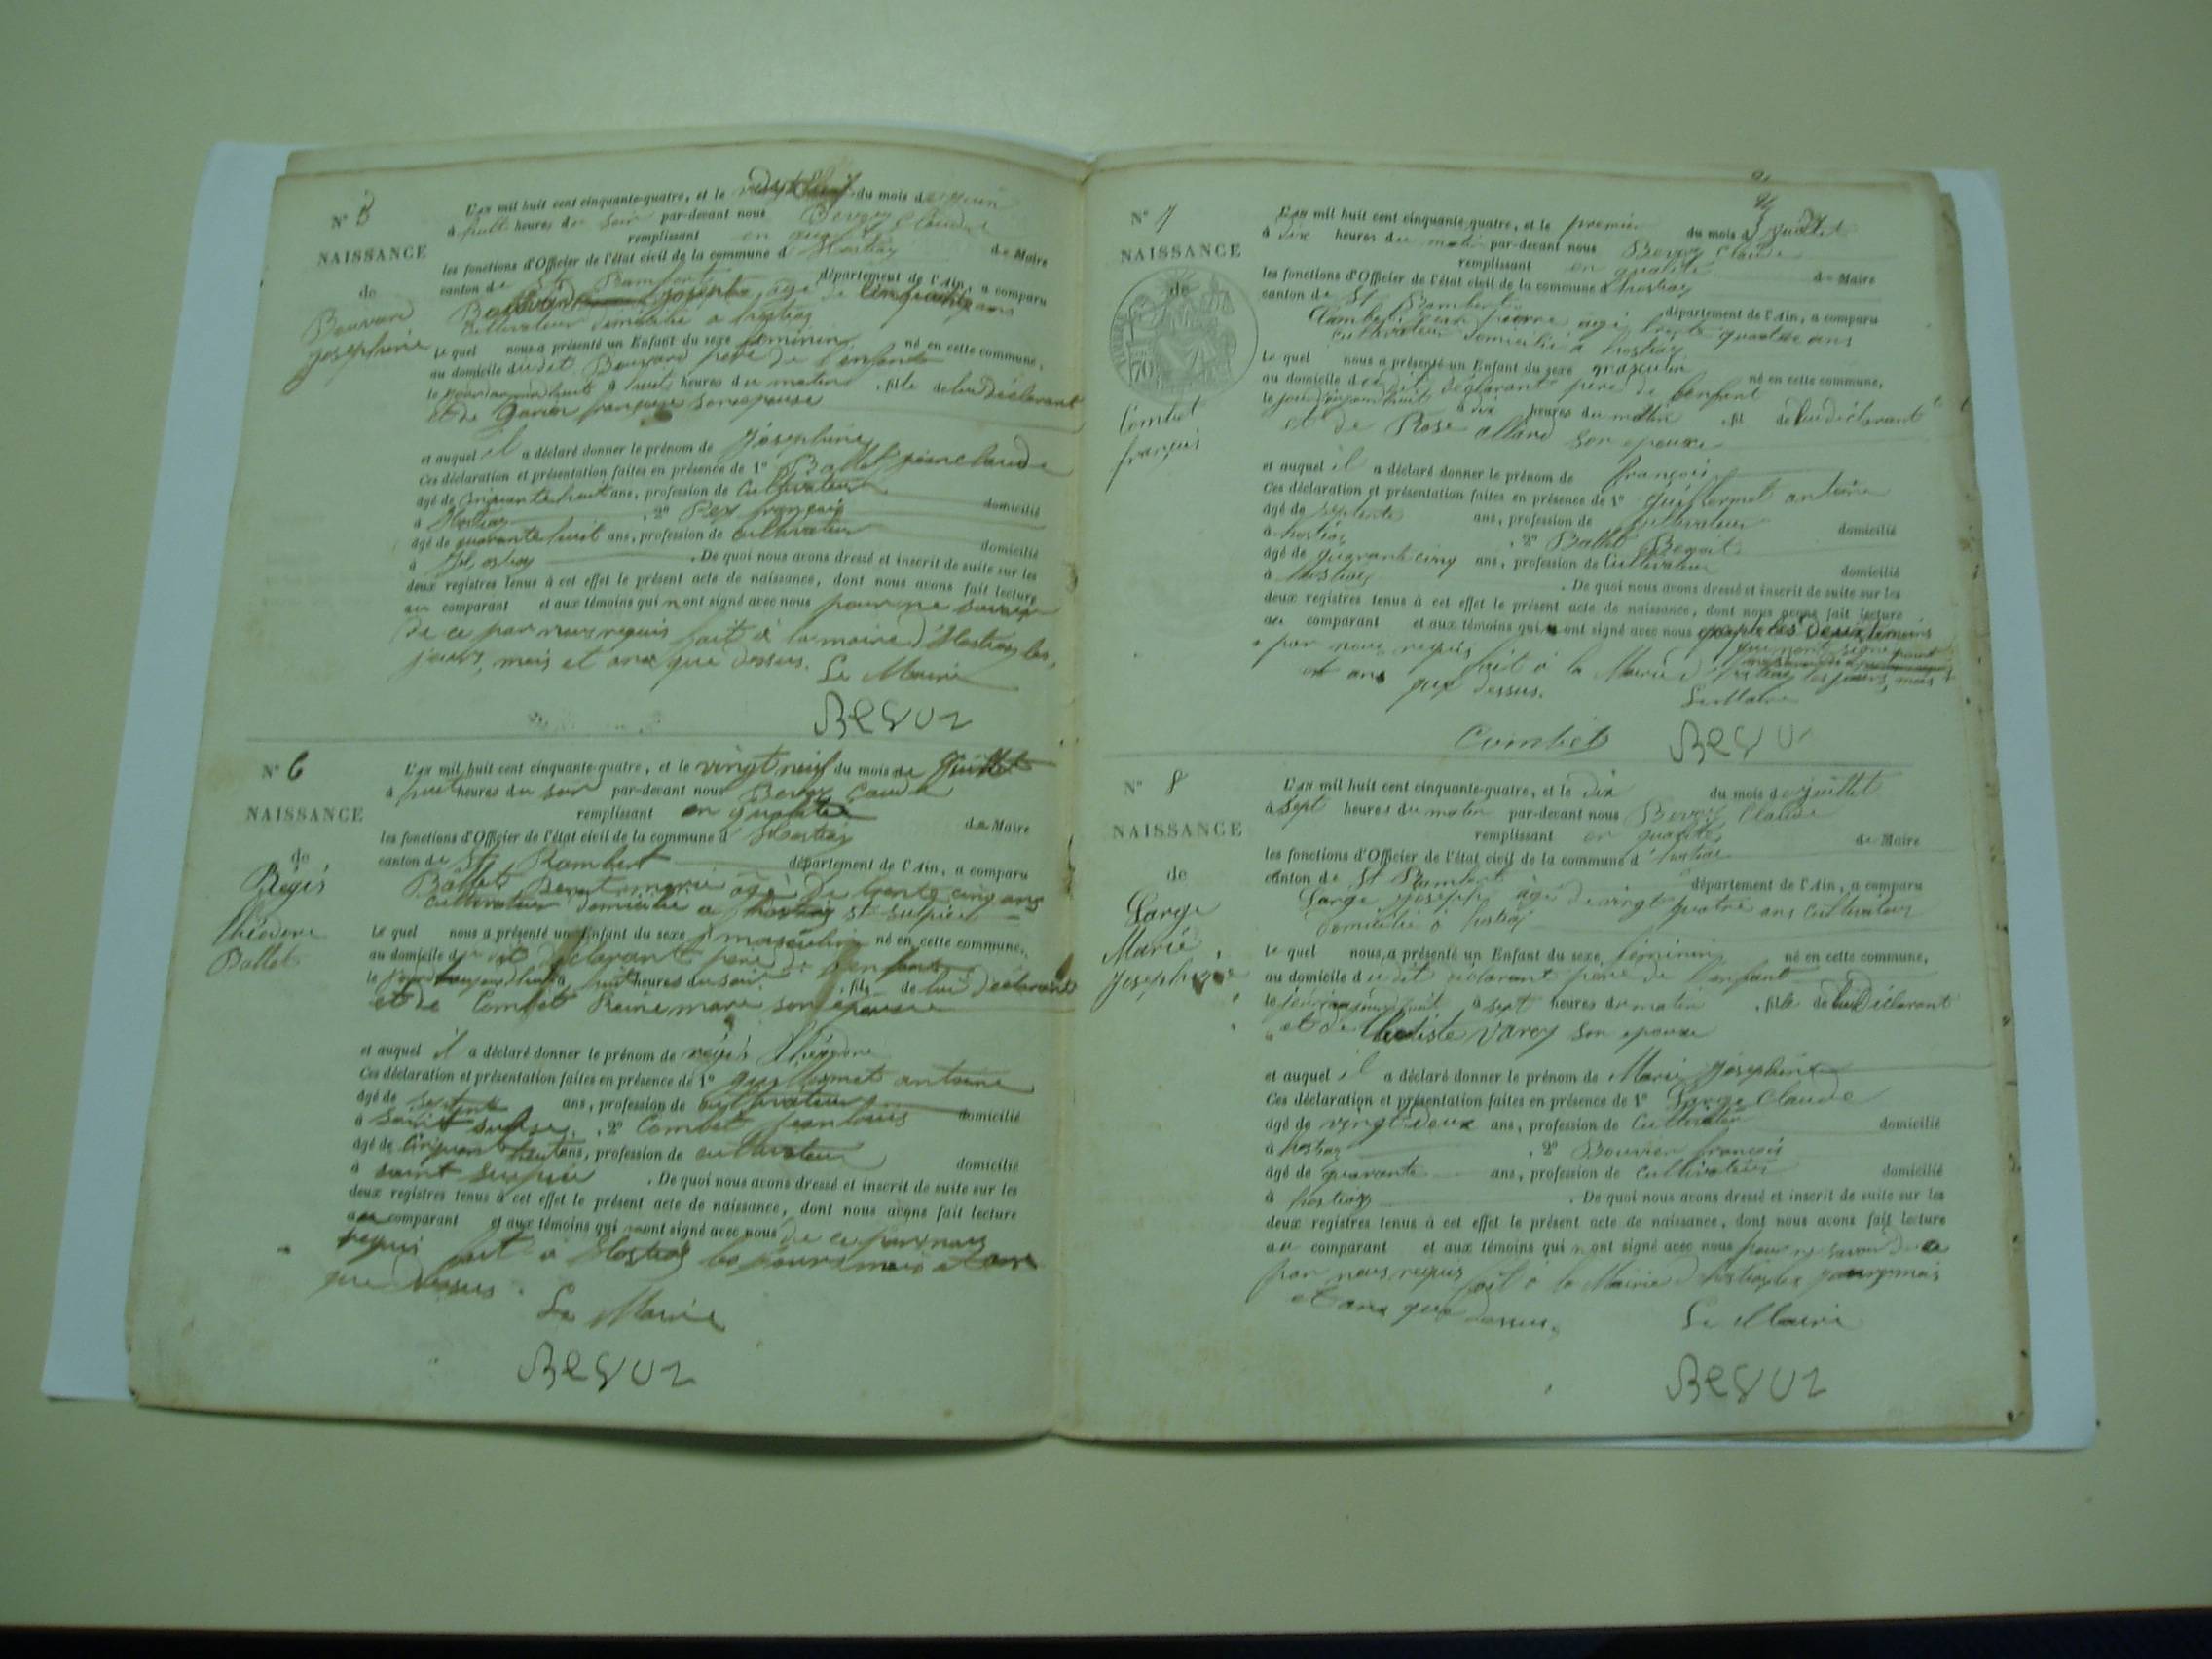 N° 5
NAISSANCE
de
Bouvard
Josephine
L'an mil huit cent cinquante-quatre, et le du mois de juin
à huit heures du soir par-devant nous Bevoz Claude
remplissant en qualité de Maire
les fonctions d'Officier de l'état civil de la commune d'hostiaz
canton de St Rambert département de l'Ain, a comparu
Bouvard joseph agé de cinquante ans
cultivateur domicilié a hostiaz
le quel nous a présenté un Enfant du sexe feminin né en cette commune,
au domicile dudit Bouvard pere de l'enfant
le jourdaujourdhuit à huit heures du matin, fille de lui Déclarant
et de françoise son epouse
et auquel il a déclaré donner le prénom de Josephine
Ces déclaration et présentation faites en présence de 1° Ballet jean claude
âgé de cinquante huit ans, profession de cultivateur domicilié
à Hostiaz, 2° françois
âgé de quarante huit ans, profession de cultivateur domicilié
à hostiaz. De quoi nous avons dressé et inscrit de suite sur les
deux registres tenus à cet effet le présent acte de naissance, dont nous avons fait lecture
au comparant et aux témoins qui n'ont signé avec nous pour ne savoir
de ce par nous requis fait à la mairie d'Hostiaz les
jours, mois et ans que dessus. Le Maire
Bevoz
N° 6
NAISSANCE
de
Régis
théodore
Ballet
L'an mil huit cent cinquante-quatre, et le vingt neuf du mois de
à huit heures du soir par-devant nous Bevoz Caude
remplissant en qualité de Maire
les fonctions d'Officier de l'état civil de la commune d'Hostiaz
canton de St Rambert département de l'Ain, a comparu
Ballet Benoit marie agé de trente cinq ans
cultivateur domicilié a hostiaz st sulpice
le quel nous a présenté un Enfant du sexe masculin né en cette commune,
au domicile du dit déclarant pere de l'enfant
le jourdaujourdhuit à huit heures du soir, fils de lui Déclarant
et de Combet Reine marie son epouse
et auquel il a déclaré donner le prénom de régis théodore
Ces déclaration et présentation faites en présence de 1° guillermet antoine
âgé de septente ans, profession de cultivateur domicilié
à saint, 2° Combet jean louis
âgé de cinquant huit ans, profession de cultivateur domicilié
à saint. De quoi nous avons dressé et inscrit de suite sur les
deux registres tenus à cet effet le présent acte de naissance, dont nous avons fait lecture
au comparant et aux témoins qui n'ont signé avec nous de ce par nous
requis fait à Hostiaz les jours mois et ans
que dessus. Le Maire
Bevoz
N° 7
NAISSANCE
de
Combet
françois
L'an mil huit cent cinquante-quatre, et le premier du mois de juillet
à dix heures du matin par-devant nous Bevoz Claude
remplissant en qualité de Maire
les fonctions d'Officier de l'état civil de la commune d'hostiaz
canton de St Rambert département de l'Ain, a comparu
Combet jean pierre agé trente quatre ans
cultivateur domicilié a hostiaz
le quel nous a présenté un Enfant du sexe masculin né en cette commune,
au domicile du dit déclarant père de l'enfant
le jourdaujourdhuit à dix heures du matin, fil de lui déclarant
et de Rose alland son epouse
et auquel il a déclaré donner le prénom de françois
Ces déclaration et présentation faites en présence de 1° guillermet antoine
âgé de septente ans, profession de cultivateur domicilié
à hostiaz, 2° Ballet Benoit
âgé de quarante cinq ans, profession de cultivateur domicilié
à hostiaz. De quoi nous avons dressé et inscrit de suite sur les
deux registres tenus à cet effet le présent acte de naissance, dont nous avons fait lecture
au comparant et aux témoins qui ont signé avec nous excepté les deux témoins
qui n'ont signé pour
par nous requis fait à la Mairie d'hostiaz les jours, mois
et ans que dessus. Le Maire
Combet Bevoz
N° 8
NAISSANCE
de
Large
Marie
josephine
L'an mil huit cent cinquante-quatre, et le dix du mois de juillet
à sept heures du matin par-devant nous Bevoz Claude
remplissant en qualité de Maire
les fonctions d'Officier de l'état civil de la commune d'hostiaz
canton de St Rambert département de l'Ain, a comparu
Large joseph agé de vingt quatre ans cultivateur
domicilié à hostiaz
le quel nous a présenté un Enfant du sexe féminin né en cette commune,
au domicile du dit déclarant pere de l'enfant
le jourdaujourdhuit à sept heures du matin, fille de lui Déclarant
et de Batiste Varey son epouse
et auquel il a déclaré donner le prénom de Marie josephine
Ces déclaration et présentation faites en présence de 1° Large Claude
âgé de vingt deux ans, profession de cultivateur domicilié
à hostiaz, 2° Bouvier françois
âgé de quarante ans, profession de cultivateur domicilié
à hostiaz. De quoi nous avons dressé et inscrit de suite sur les
deux registres tenus à cet effet le présent acte de naissance, dont nous avons fait lecture
au comparant et aux témoins qui n'ont signé avec nous pour ne savoir de ce
par nous requis fait à la Mairie d'hostiaz les jours mois
et ans que dessus. Le Maire
Bevoz